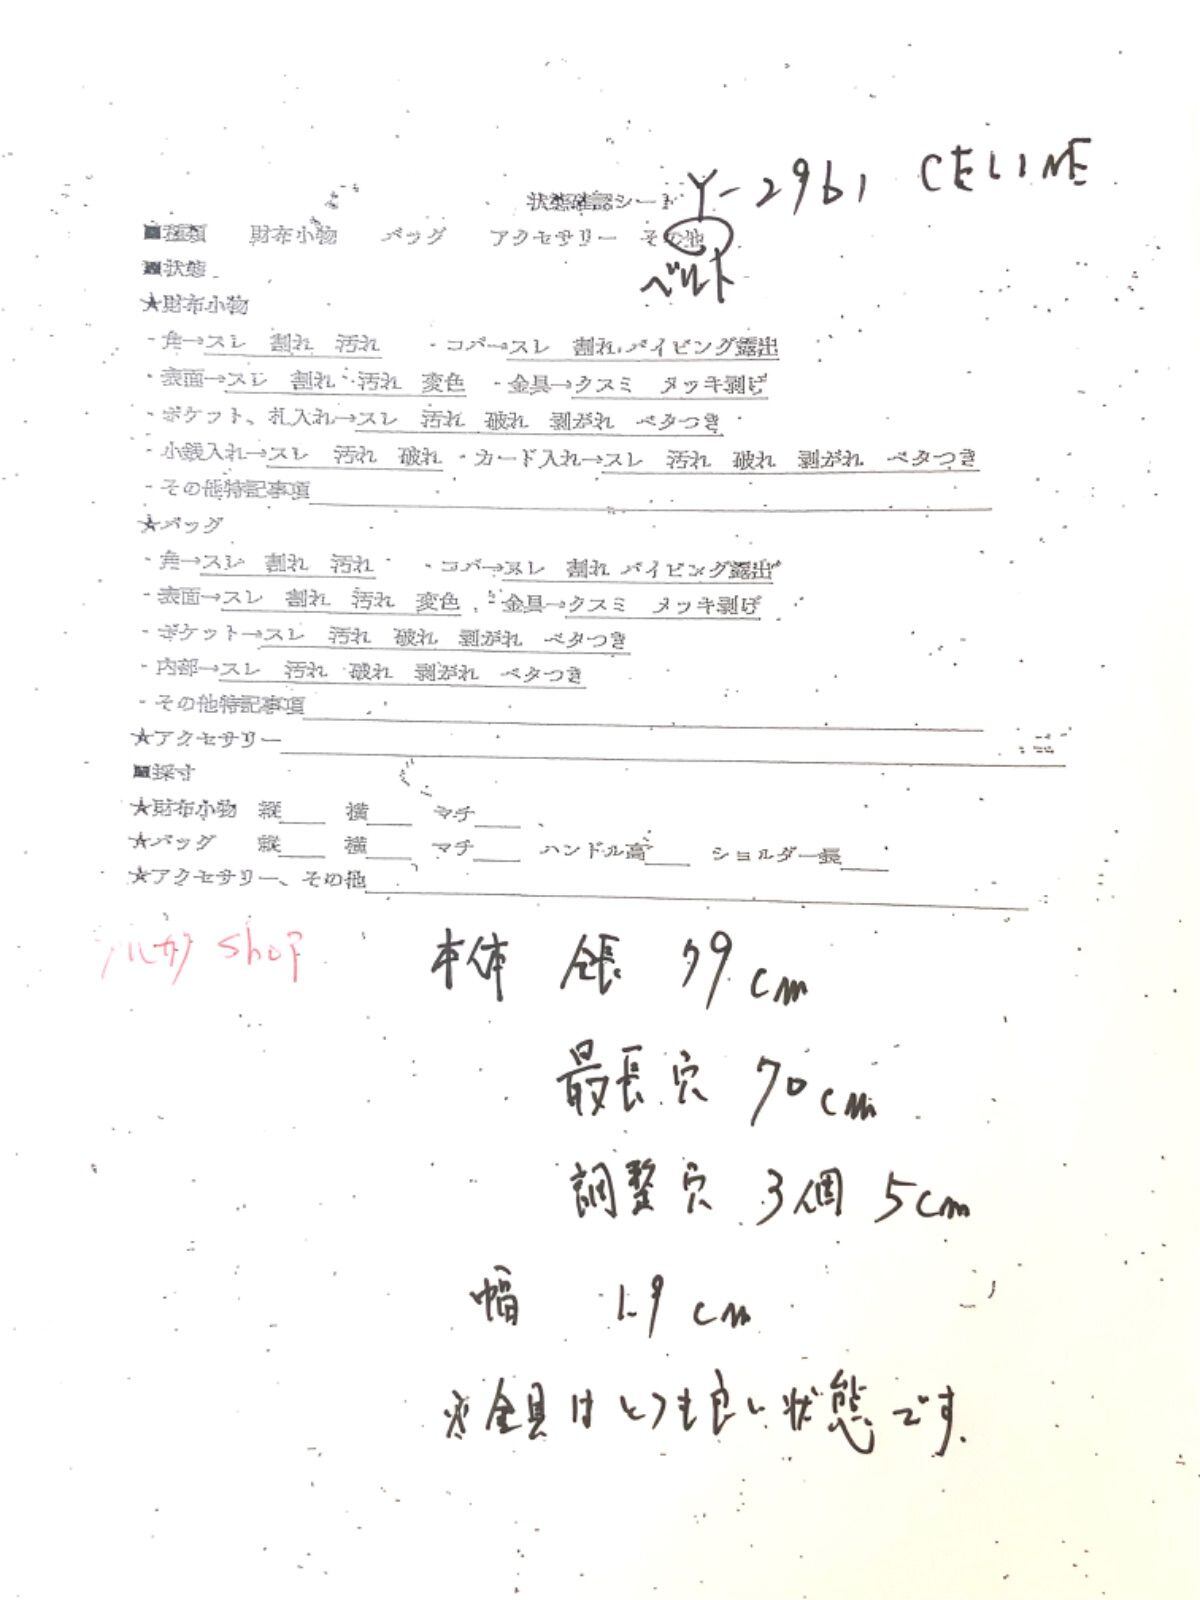 Y-2961 CELINE
状態確認シート
■種類 財布小物 バッグ アクセサリー その他
ベルト
■状態
★財布小物
・角→スレ 割れ 汚れ ・コバ→スレ 割れ パイピング露出
・表面→スレ 割れ 汚れ 変色 ・金具→クスミ メッキ剥げ
・ポケット、札入れ→スレ 汚れ 破れ 剥がれ ベタつき
・小銭入れ→スレ 汚れ 破れ ・カード入れ→スレ 汚れ 破れ 剥がれ ベタつき
・その他特記事項
★バッグ
・角→スレ 割れ 汚れ ・コバ→スレ 割れ パイピング露出
・表面→スレ 割れ 汚れ 変色 ・金具→クスミ メッキ剥げ
・ポケット→スレ 汚れ 破れ 剥がれ ベタつき
・内部→スレ 汚れ 破れ 剥がれ ベタつき
・その他特記事項
★アクセサリー
■採寸
★財布小物 縦 横 マチ
★バッグ 縦 横 マチ ハンドル高 ショルダー長
★アクセサリー、その他
shop
本体 全長 79cm
最長穴 70cm
調整穴 3個 5cm
幅 1.9cm
※金具はとても良い状態です.